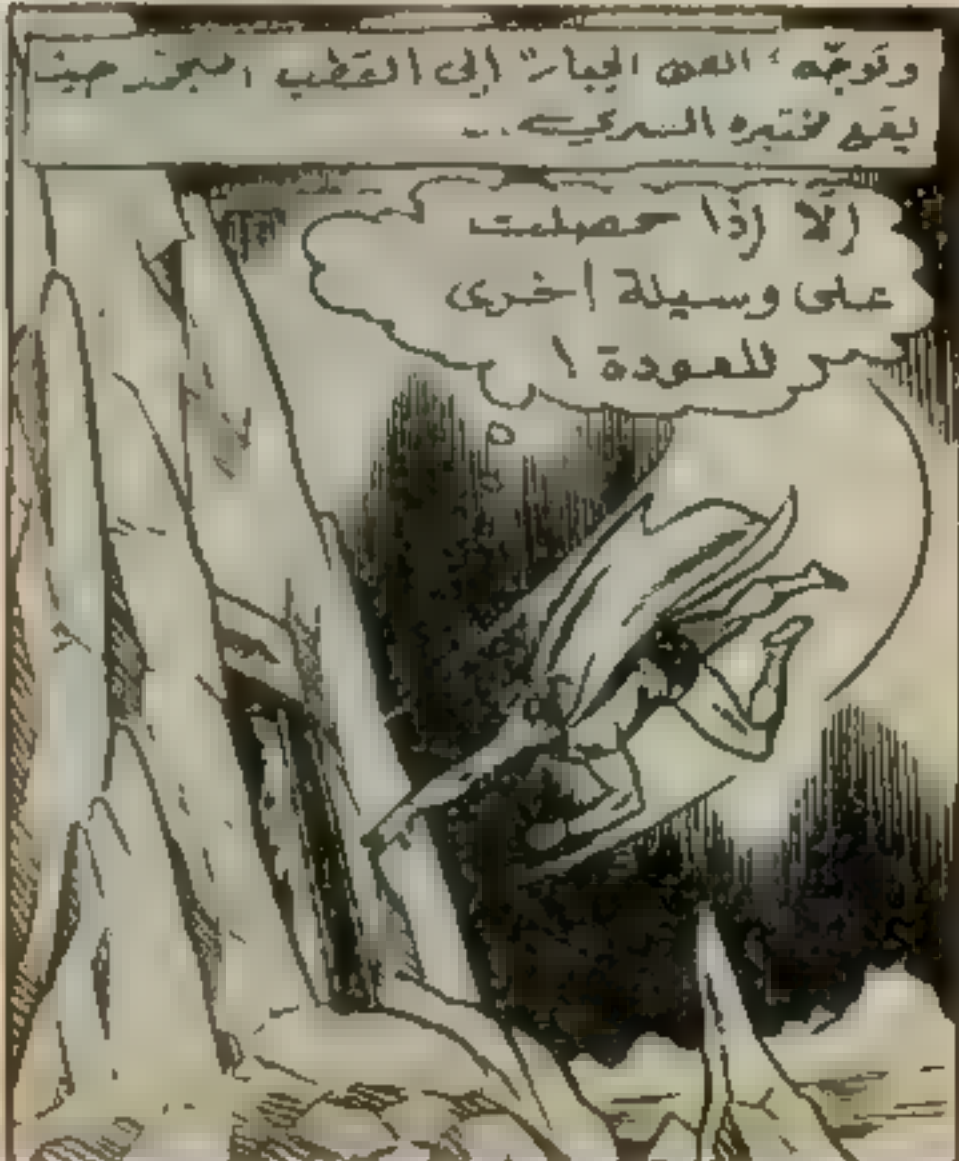 وتوجّه "الفتى الجبار" إلى القطب المتجمّد حيث
يقع مختبره السري...
إلّا إذا حصلت
على وسيلة أخرى
للعودة !